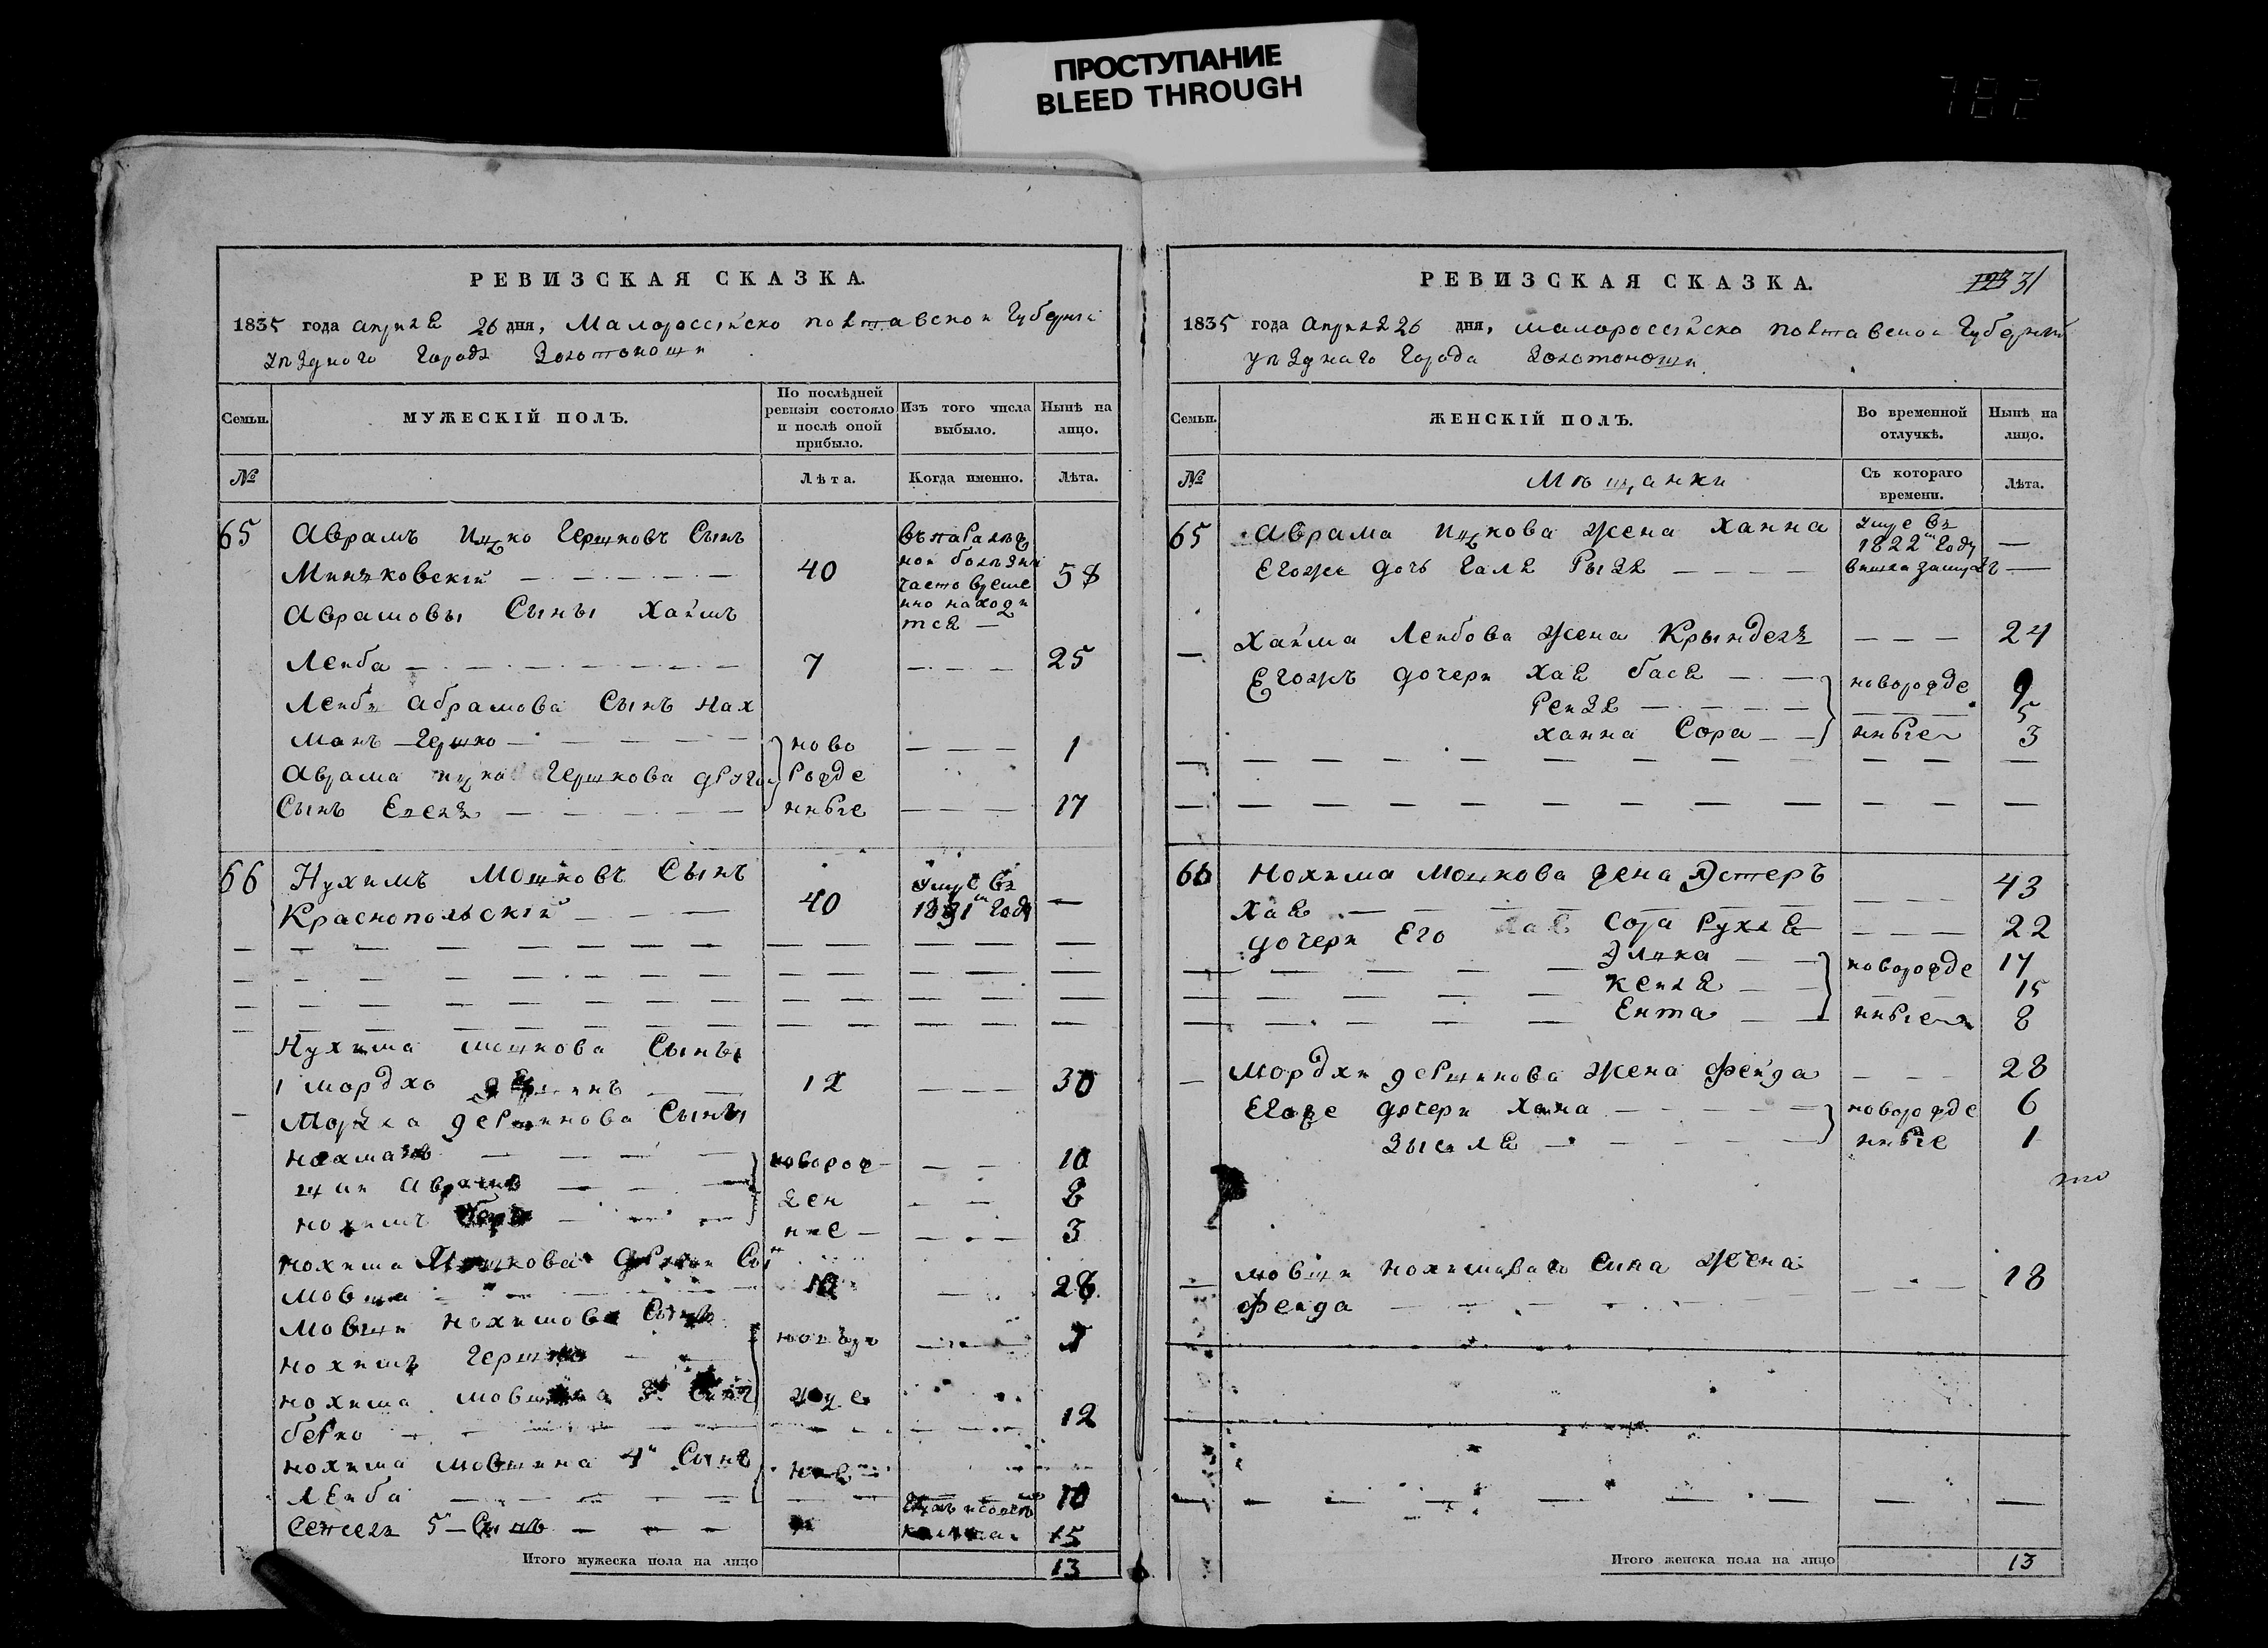 ПРОСТУПАНИЕ
BLEED THROUGH
782
РЕВИЗСКАЯ СКАЗКА.
1835 года апреля 26 дня, Малороссийско Полтавской Губернии
уѣзднаго города Золотоноши
Семьи.
МУЖЕСКІЙ ПОЛЪ.
По послѣдней
ревизіи состояло
и послѣ оной
прибыло.
Изъ того числа
выбыло.
Нынѣ на
лицо.
№
Лѣта.
Когда именно.
Лѣта.
65 Аврамъ Ицко Гершковъ Сынъ
Миньковскій 40 58
въ паралич
ной болѣзни
часто време
нно находи
тся
Аврамовы Сыны Хаимъ
Лейба 7 25
Лейби Абрамова Сынъ Нах
манъ Гершко ново 1
Аврама Ицка Гершкова другой рожде
Сынъ нные 17
66 Нухимъ Мошковъ Сынъ
Краснопольскій 40 умре въ
1831 году
Нухима Мошкова Сыны
1 Мордко 12 30
Сыны
Нахманъ новорож 10
Аврамъ ден 8
Нохимъ ные 3
Нохима
Мовша 10 28
Мовши Нохимова Сынъ
Нохимъ Гершко
Нохима 3й Сынъ
Берко 12
Нохима Мовшина 4й Сынъ
Лейба 10
5й Сынъ 15
Итого мужеска пола на лицо 13
РЕВИЗСКАЯ СКАЗКА.
123 31
1835 года апреля 26 дня, Малороссийско Полтавской Губернии
уѣзднаго города Золотоноши
Семьи.
ЖЕНСКІЙ ПОЛЪ.
Во временной
отлучкѣ.
Нынѣ на
лицо.
№
Мѣщанки
Съ котораго
времени.
Лѣта.
65 Аврама Ицкова жена Ханна умре въ
1822м году
Егоже дочь Галя Рызя вышла замуж
Хаима Лейбова жена Крындель 24
Егожъ дочери Хая Бася новорожде 9
Рейзя 5
Ханна Сора нные 3
66 Нохима Мошкова жена Эстеръ 43
Хая
дочери Его Сора Рухля 22
Элька новорожде 17
Кейля 15
Ента нные 8
Мордки жена Фейда 28
Егоже дочери Хана новорожде 6
Зысля нные 1
Мовши Нохимоваго сина жена 18
Фейда
Итого женска пола на лицо 13